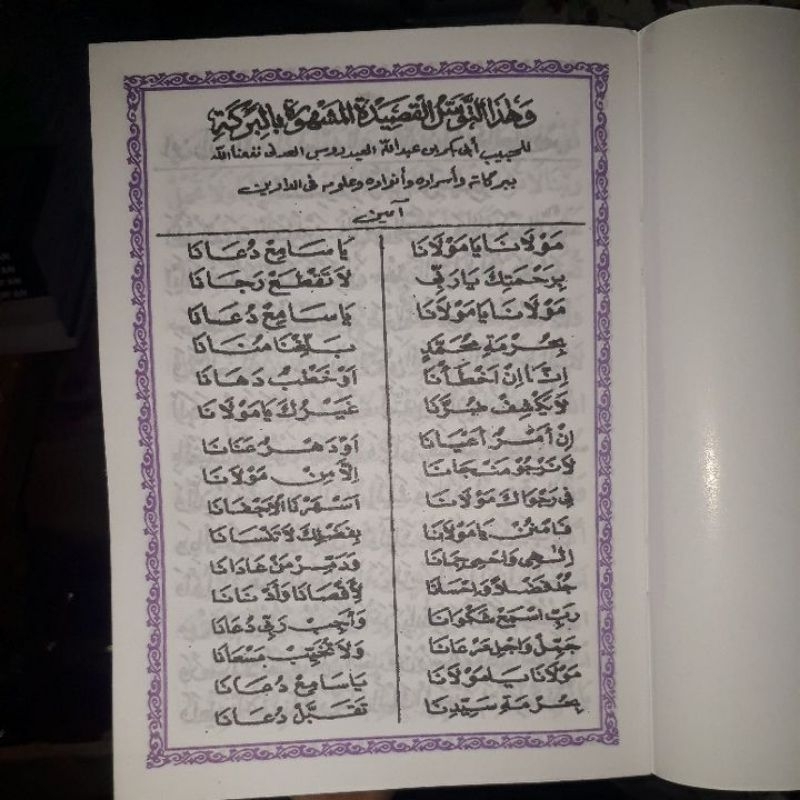 وَهٰذَا التَّوَسُّلُ الْقَصِيْدَةُ الْمَشْهُوْرَةُ بِالْبَرَكَةِ
للحبيب أبى بكر بن عبد الله العيدروس العدنى نفعنا الله
ببركاته وأسراره وأنواره وعلومه فى الدارين
آمين
مَوْلَانَا يَا مَوْلَانَا يَا سَامِعْ دُعَانَا
بِرَحْمَتِكَ يَا رَبِّى لَا تَقْطَعْ رَجَانَا
مَوْلَانَا يَا مَوْلَانَا يَا سَامِعْ دُعَانَا
بِحُرْمَةِ مُحَمَّدٍ بَلِّغْنَا مُنَانَا
إِنَّا إِنْ أَخْطَأْنَا أَوْ خَطْبٌ دَهَانَا
لَا يَكْشِفْ ضُرَّنَا غَيْرُكَ يَا مَوْلَانَا
إِنْ أَمْرٌ أَعْيَانَا أَوْ دَهْرٌ عَنَانَا
لَا نَرْجُوْ مَنْجَانَا إِلَّا مِنْ مَوْلَانَا
فِى رَجْوَاكَ مَوْلَانَا أَسْهَرْنَا الْأَجْفَانَا
فَامْنُنْ يَا مَوْلَانَا بِفَضْلِكَ لَا تَنْسَانَا
إِلٰهِى وَاحْمِى حِمَانَا وَدَمِّرْ مَنْ عَادَانَا
جُدْ فَضْلًا وَإِحْسَانَا لِأَقْصَانَا وَأَدْنَانَا
رَبِّ اسْمَعْ شَكْوَانَا وَأَجِبْ رَبِّى دُعَانَا
وَلَا تُخَيِّبْ مَسْعَانَا
مَوْلَانَا يَا مَوْلَانَا يَا سَامِعْ دُعَانَا
بِحُرْمَةِ سَيِّدِنَا تَقَبَّلْ دُعَانَا